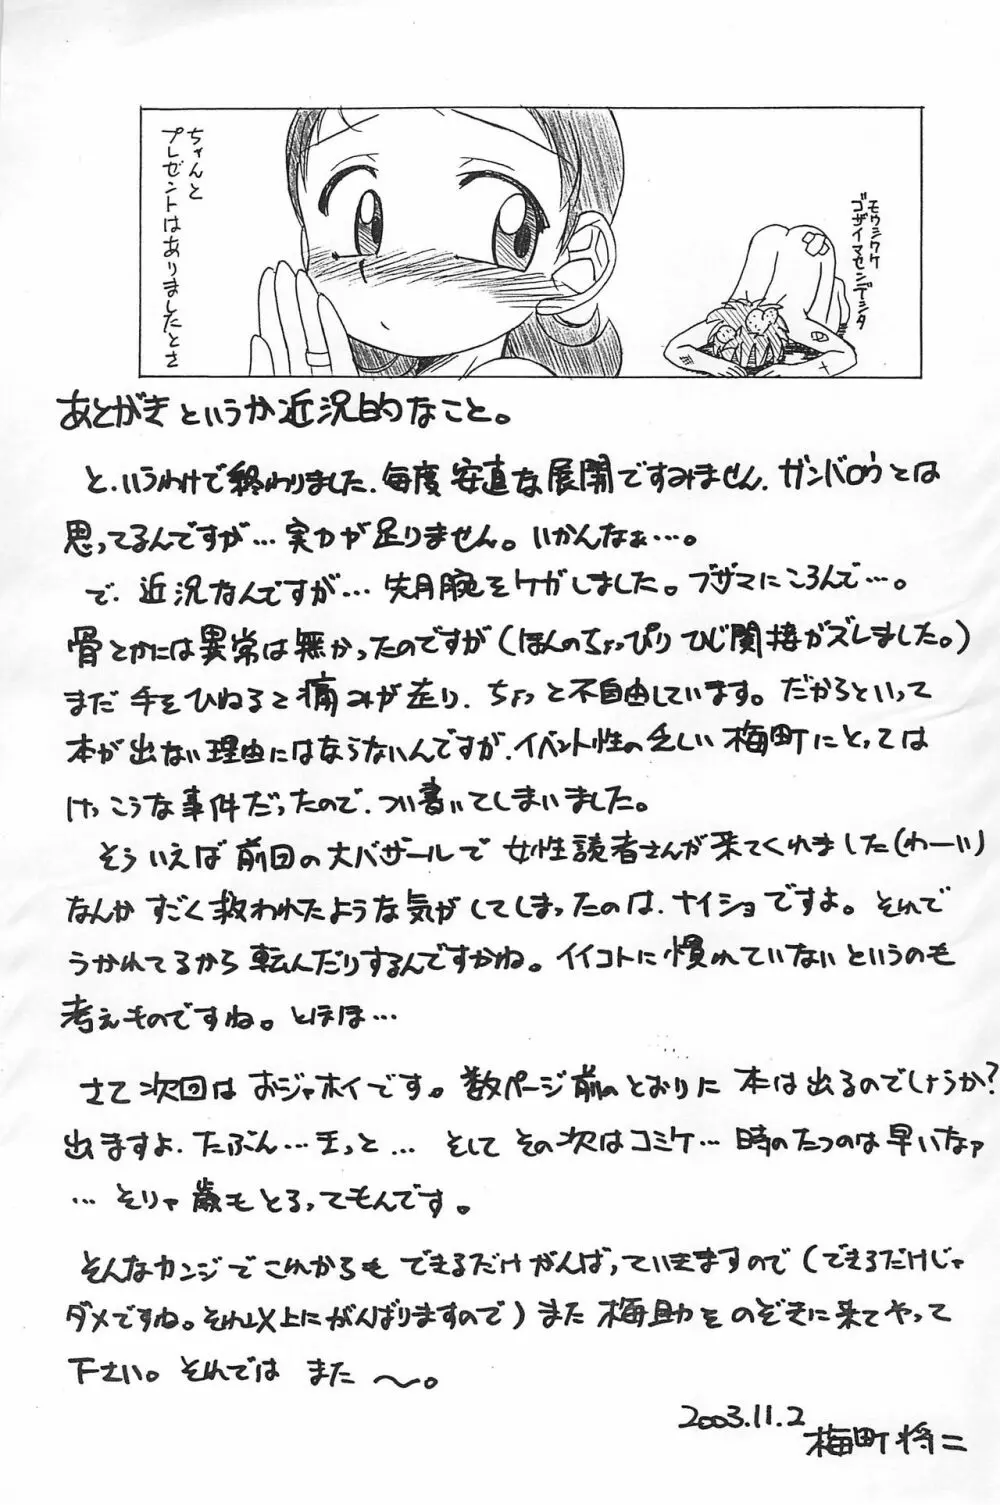 モウシワケ
ゴザイマセンデシタ
ちゃんと
プレゼントはありましたとさ
あとがきというか近況的なこと。
と.いうわけで終わりました.毎度安直な展開ですみません.ガンバロウとは
思ってるんですが…実力が足りません。いかんなぁ…。
で.近況なんですが…先月腕をケガしました。ブザマにころんで…。
骨とかには異常は無かったのですが(ほんのちょっぴりひじ関接がズレました。)
まだ手をひねると痛みが走り.ちょっと不自由しています。だからといって
本が出ない理由にはならないんですが.イベント性の乏しい梅町にとっては
けっこうな事件だったので.つい書いてしまいました。
そういえば前回の大バザールで女性読者さんが来てくれました(わーい)
なんかすごく救われたような気がしてしまったのは.ナイショですよ。それで
うかれてるから転んだりするんですかね。イイコトに慣れていないというのも
考えものですね。とほほ…
さて次回はおジャホイです。数ページ前のとおりに本は出るのでしょうか?
出ますよ.たぶん…きっと… そしてその次はコミケ…時のたつのは早いなァ
…そりゃ歳もとるってもんです。
そんなカンジでこれからもできるだけがんばっていきますので(できるだけじゃ
ダメですね。それ以上にがんばりますので)また梅助をのぞきに来てやって
下さい。それではまた〜。
2003.11.2
梅町将二